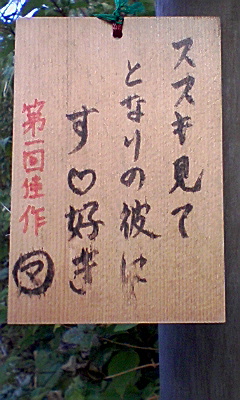 ススキ見て
となりの彼に
す♡好き
第一回佳作
マ